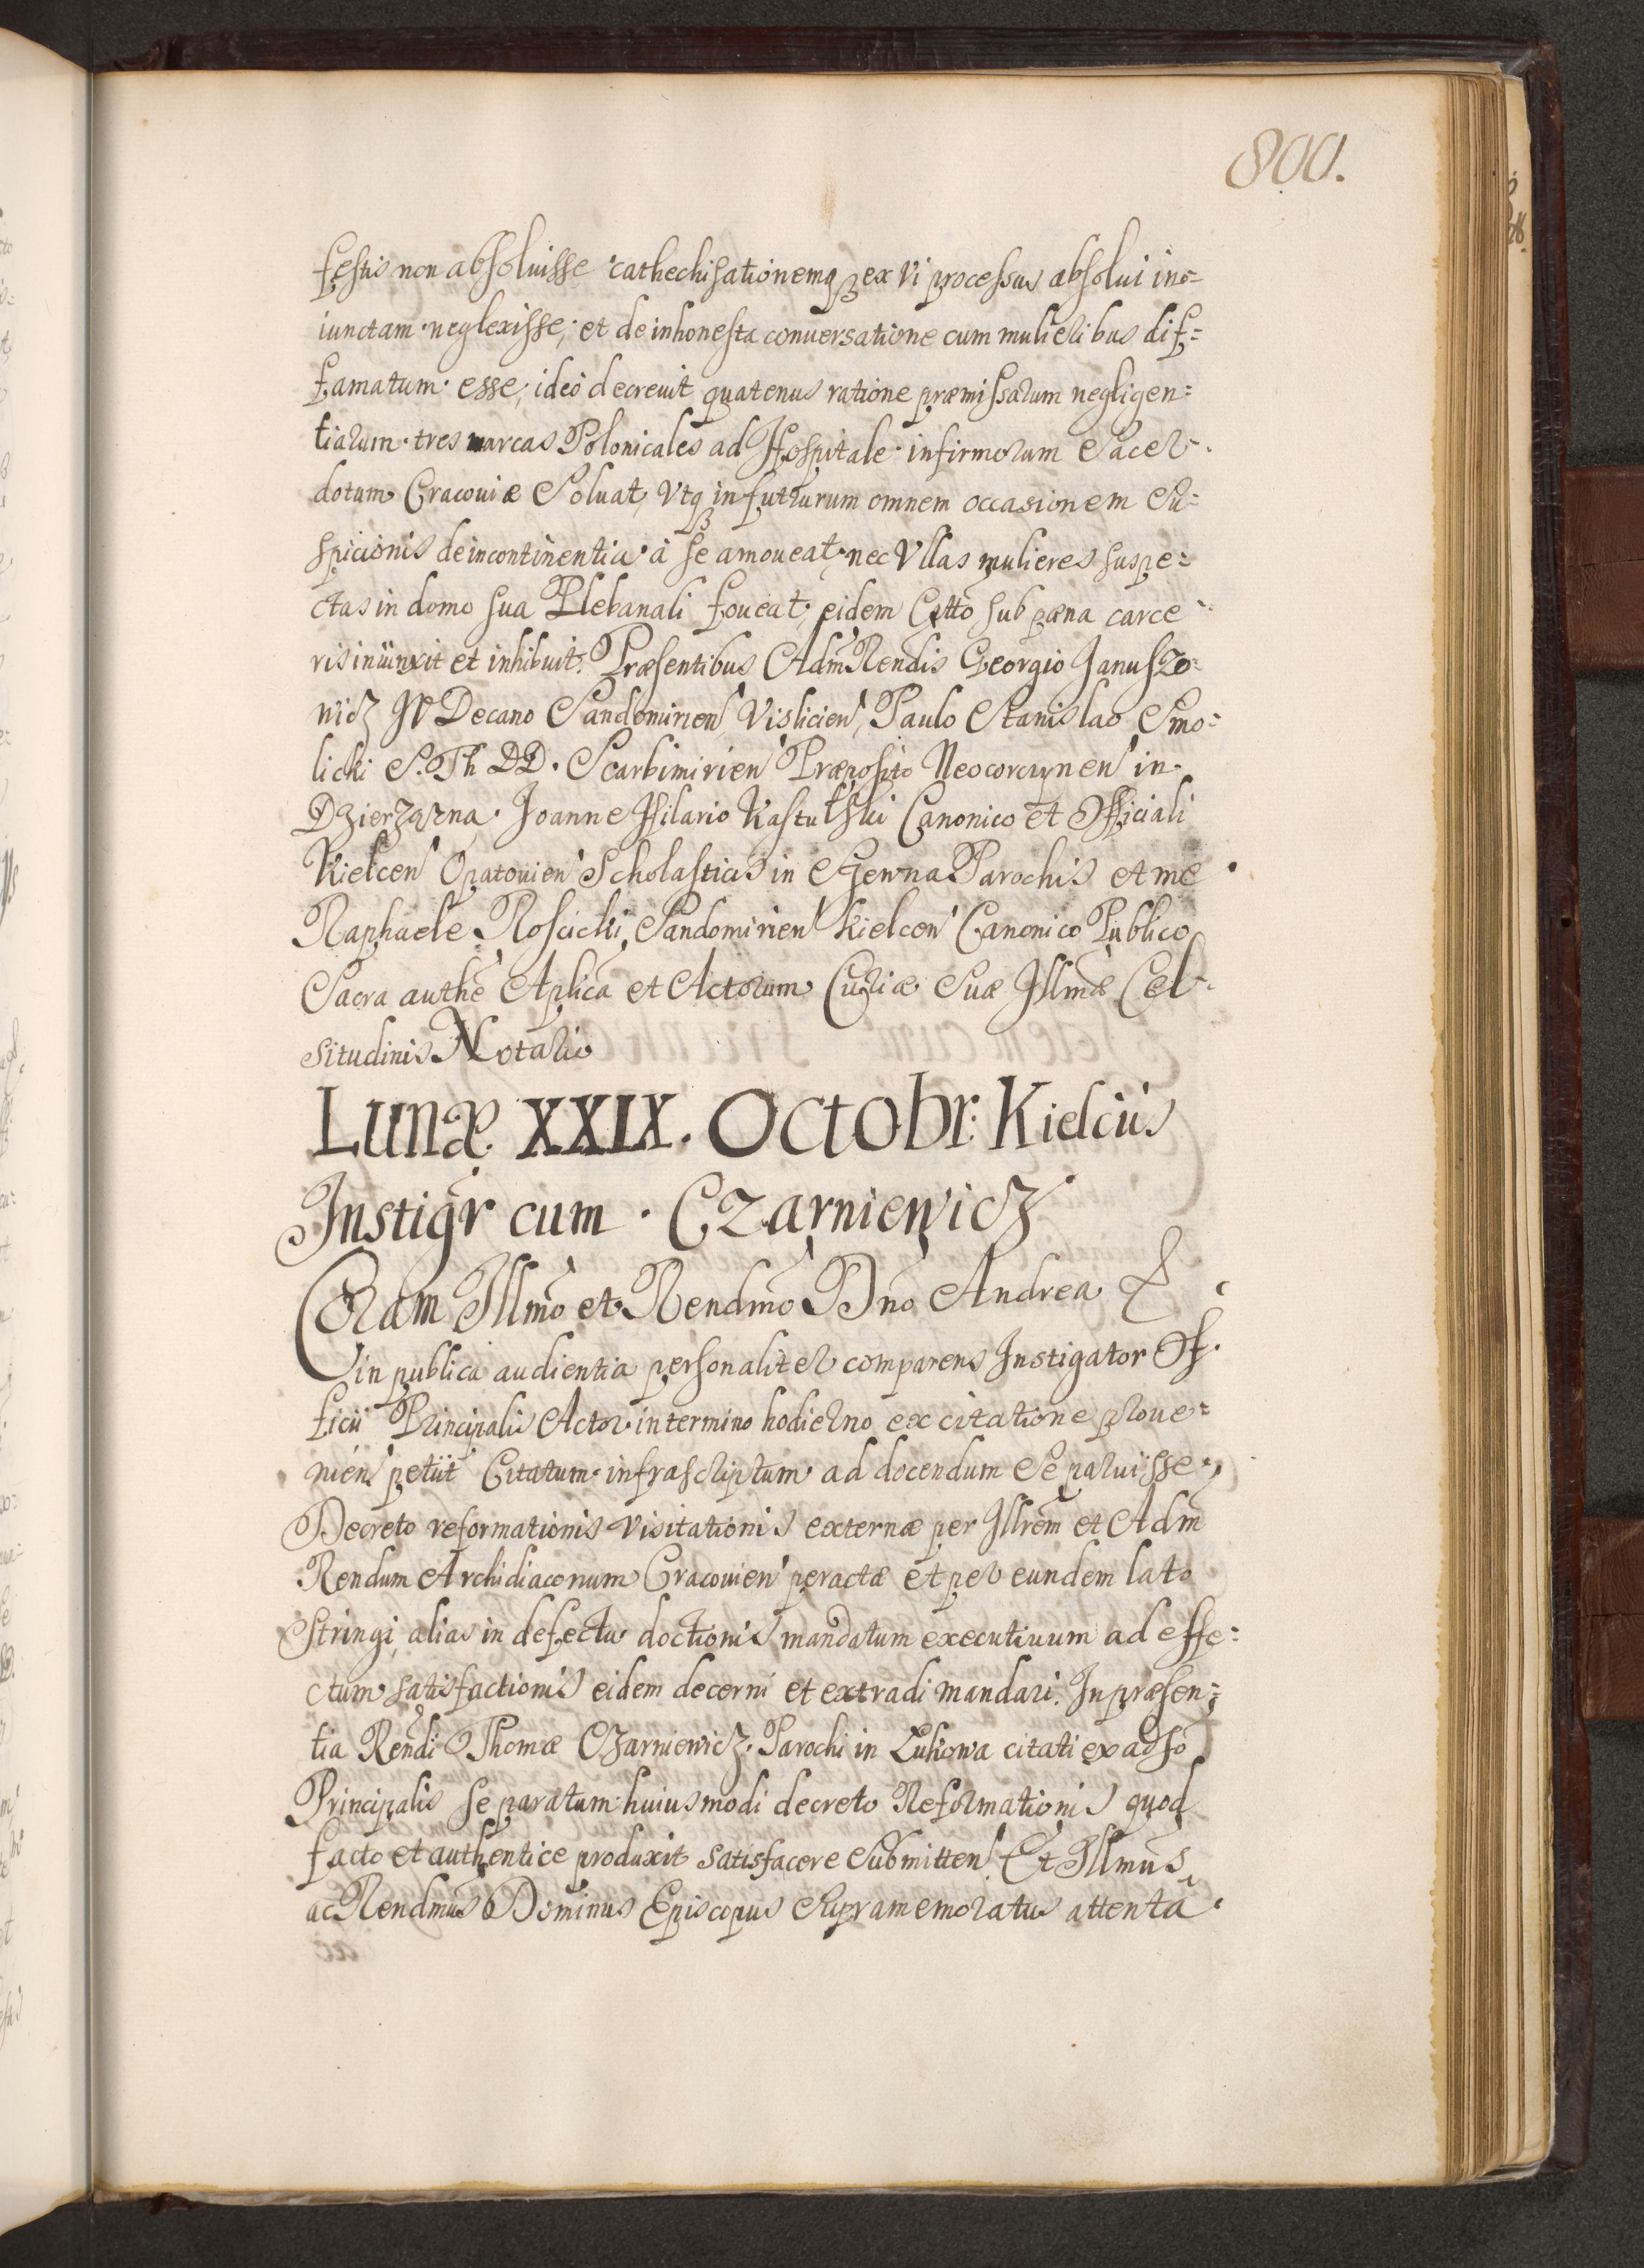 800.
festis non absoluisse cathechisationemq ex vi processus absolui in-
iunctam neglexisse, et de inhonesta conuersatione cum mulieribus dif=
famatum esse, ideo decreuit quatenus ratione præmissarum negligen=
tiarum tres marcas Polonicales ad Hospitale infirmorum Sacer-
dotum Cracouiæ Soluat, Vtq in futurum omnem occasionem Su=
spicionis de incontinentia à se amoueat nec Vllas mulieres suspe=
ctas in domo sua Plebanali foueat, eidem Citto sub pæna carce-
ris iniünxit et inhibuit. Præsentibus AdmRendis Georgio Januszo-
wicz Decano Sandomirien Vislicien, Paulo Stanislao Smo=
licki S. Th DD. Scarbimirien Præposito Neocorcynen in
Dzierzązna Joanne Hilario Kastulski Canonico et Officiali
Kielcen Opatouien Scholasticis in Parochis et me
Raphaele Roscicki, Sandomirien Kielcen Canonico Publico
Sacra authe Aplica et Actorum Curiæ Suæ Illmæ Cel-
situdinis Notario
Lunæ XXIX. Octobr: Kielciis
Instigr cum Czarniewicz
Coram Illmo et Rendmo Dno Andrea &
in publica audientia personaliter comparens Instigator Of-
ficii Principalis Actor in termino hodierno ex citatione proue=
nien petiit Citatum infrascriptum ad docendum Se paruisse
Decreto reformationis visitationis externæ per Illrem et Adm
Rendum Archidiaconum Cracouien peractæ et per eundem lato
Stringi, alias in defectu doctionis mandatum executiuum ad effe=
ctum satisfactionis eidem decerni et extradi mandari. In præsen=
tia Rendi Thomæ Czarniewicz Parochi in Łukowa citati ex adso
Principalis se paratum huiusmodi decreto Reformationis quod
facto et authentice produxit satisfacere Submitten. Et Illmus
ac Rendmus Dominus Episcopus Supramemoratus attenta